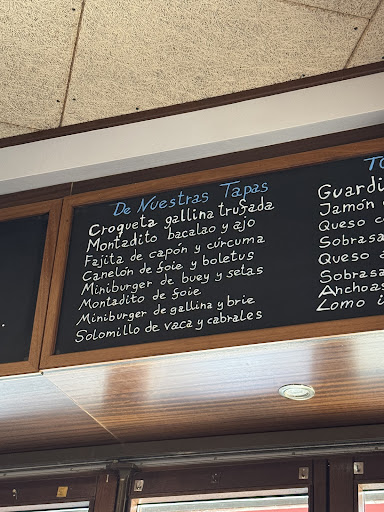 De Nuestras Tapas
Croqueta gallina trufada
Montadito bacalao y ajo
Fajita de capón y cúrcuma
Canelón de foie y boletus
Miniburger de buey y setas
Montadito de foie
Miniburger de gallina y brie
Solomillo de vaca y cabrales
Jamón
Queso
Sobrasa
Queso
Sobrasa
Anchoas
Lomo